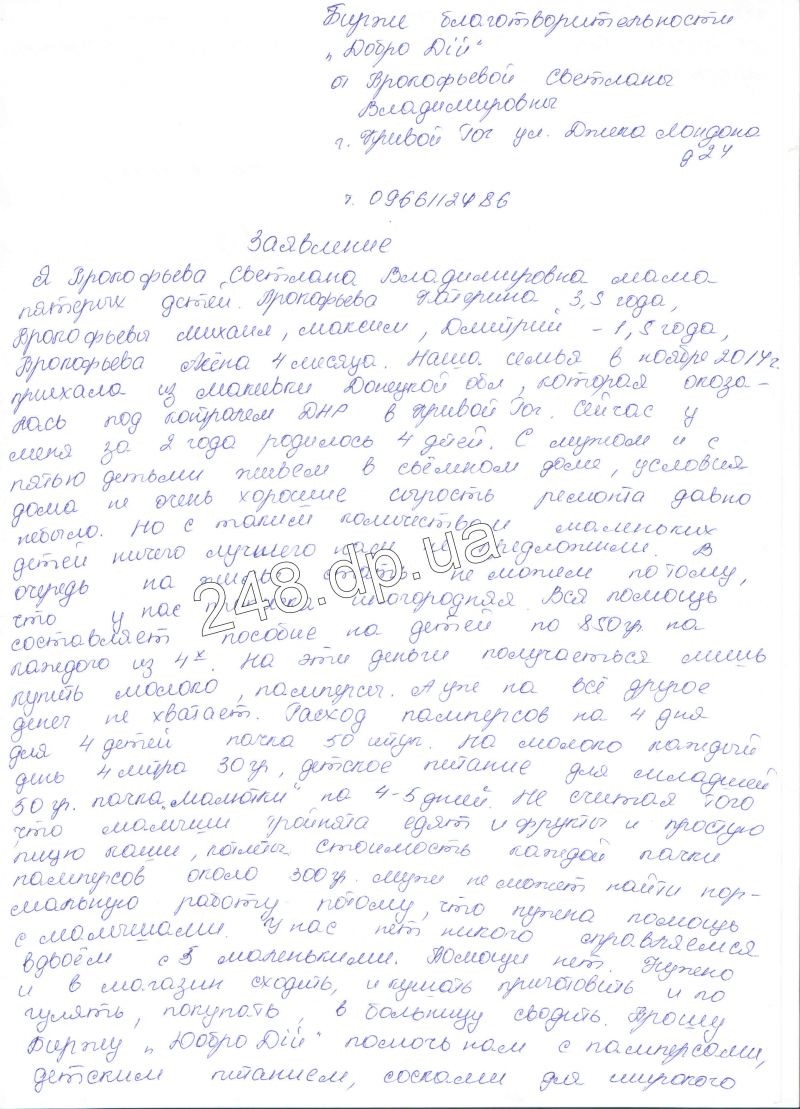 Бирже благотворительности
„Добро Дій"
от Прокофьевой Светланы
Владимировны
г. Кривой Рог ул. Джека Лондона
д 24
т. 0966112486
Заявление
Я Прокофьева Светлана Владимировна мама
пятерых детей. Прокофьева Катерина 3,5 года,
Прокофьевы Михаил, Максим, Дмитрий – 1,5 года,
Прокофьева Алёна 4 месяца. Наша семья в ноябре 2014г.
приехала из Макеевки Донецкой обл, которая оказа-
лась под контролем ДНР в Кривой Рог. Сейчас у
меня за 2 года родилось 4 детей. С мужом и с
пятью детьми живём в съёмном доме, условия
дома не очень хорошие сырость ремонта давно
небыло. Но с таким количеством маленьких
детей ничего лучшего нам не предложили. В
очередь на жильё стать не можем потому,
что у нас прописка иногородняя. Вся помощь
составляет пособие на детей по 850гр. на
каждого из 4х. На эти деньги получаеться лишь
купить молоко, памперсы. А уже на всё другое
денег не хватает. Расход памперсов на 4 дня
для 4 детей пачка 50 штук. На молоко каждый
день 4 литра 30гр, детское питание для младшей
50 гр. пачка „малютки" на 4-5 дней. Не считая того
что малыши тройнята едят и фрукты и простую
пищу каши, котлеты. Стоимость каждой пачки
памперсов около 300гр. Муж не может найти нор-
мальную работу потому, что нужна помощь
с малышами. У нас нет никого справляемся
вдвоём с 5 маленькими. Помощи нет. Нужно
и в магазин сходить, и кушать приготовить и по
гулять, покупать, в больницу сводить. Прошу
Биржу „Добро Дій" помочь нам с памперсами,
детским питанием, сосками для широкого
248.dp.ua